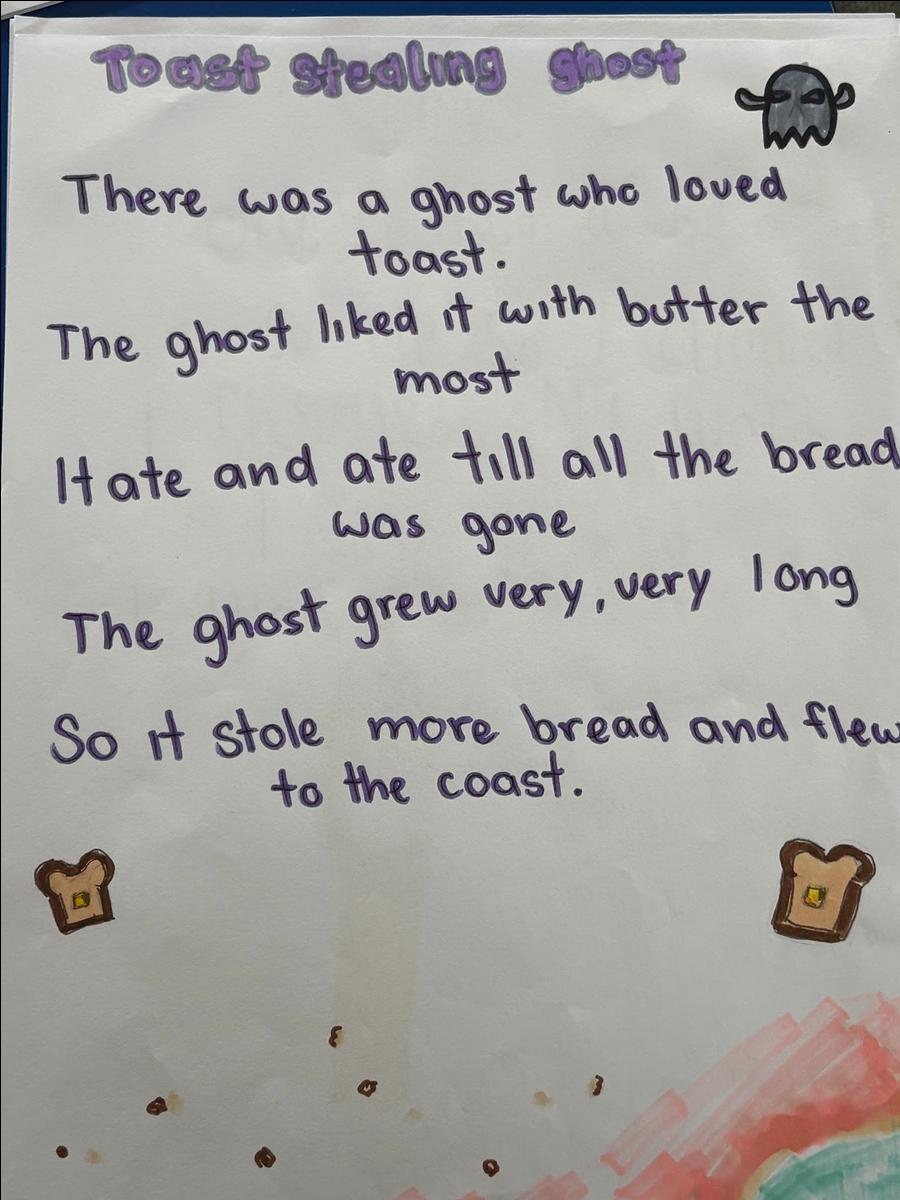 Toast stealing ghost
There was a ghost who loved
toast.
The ghost liked it with butter the
most
It ate and ate till all the bread
was gone
The ghost grew very, very long
So it stole more bread and flew
to the coast.